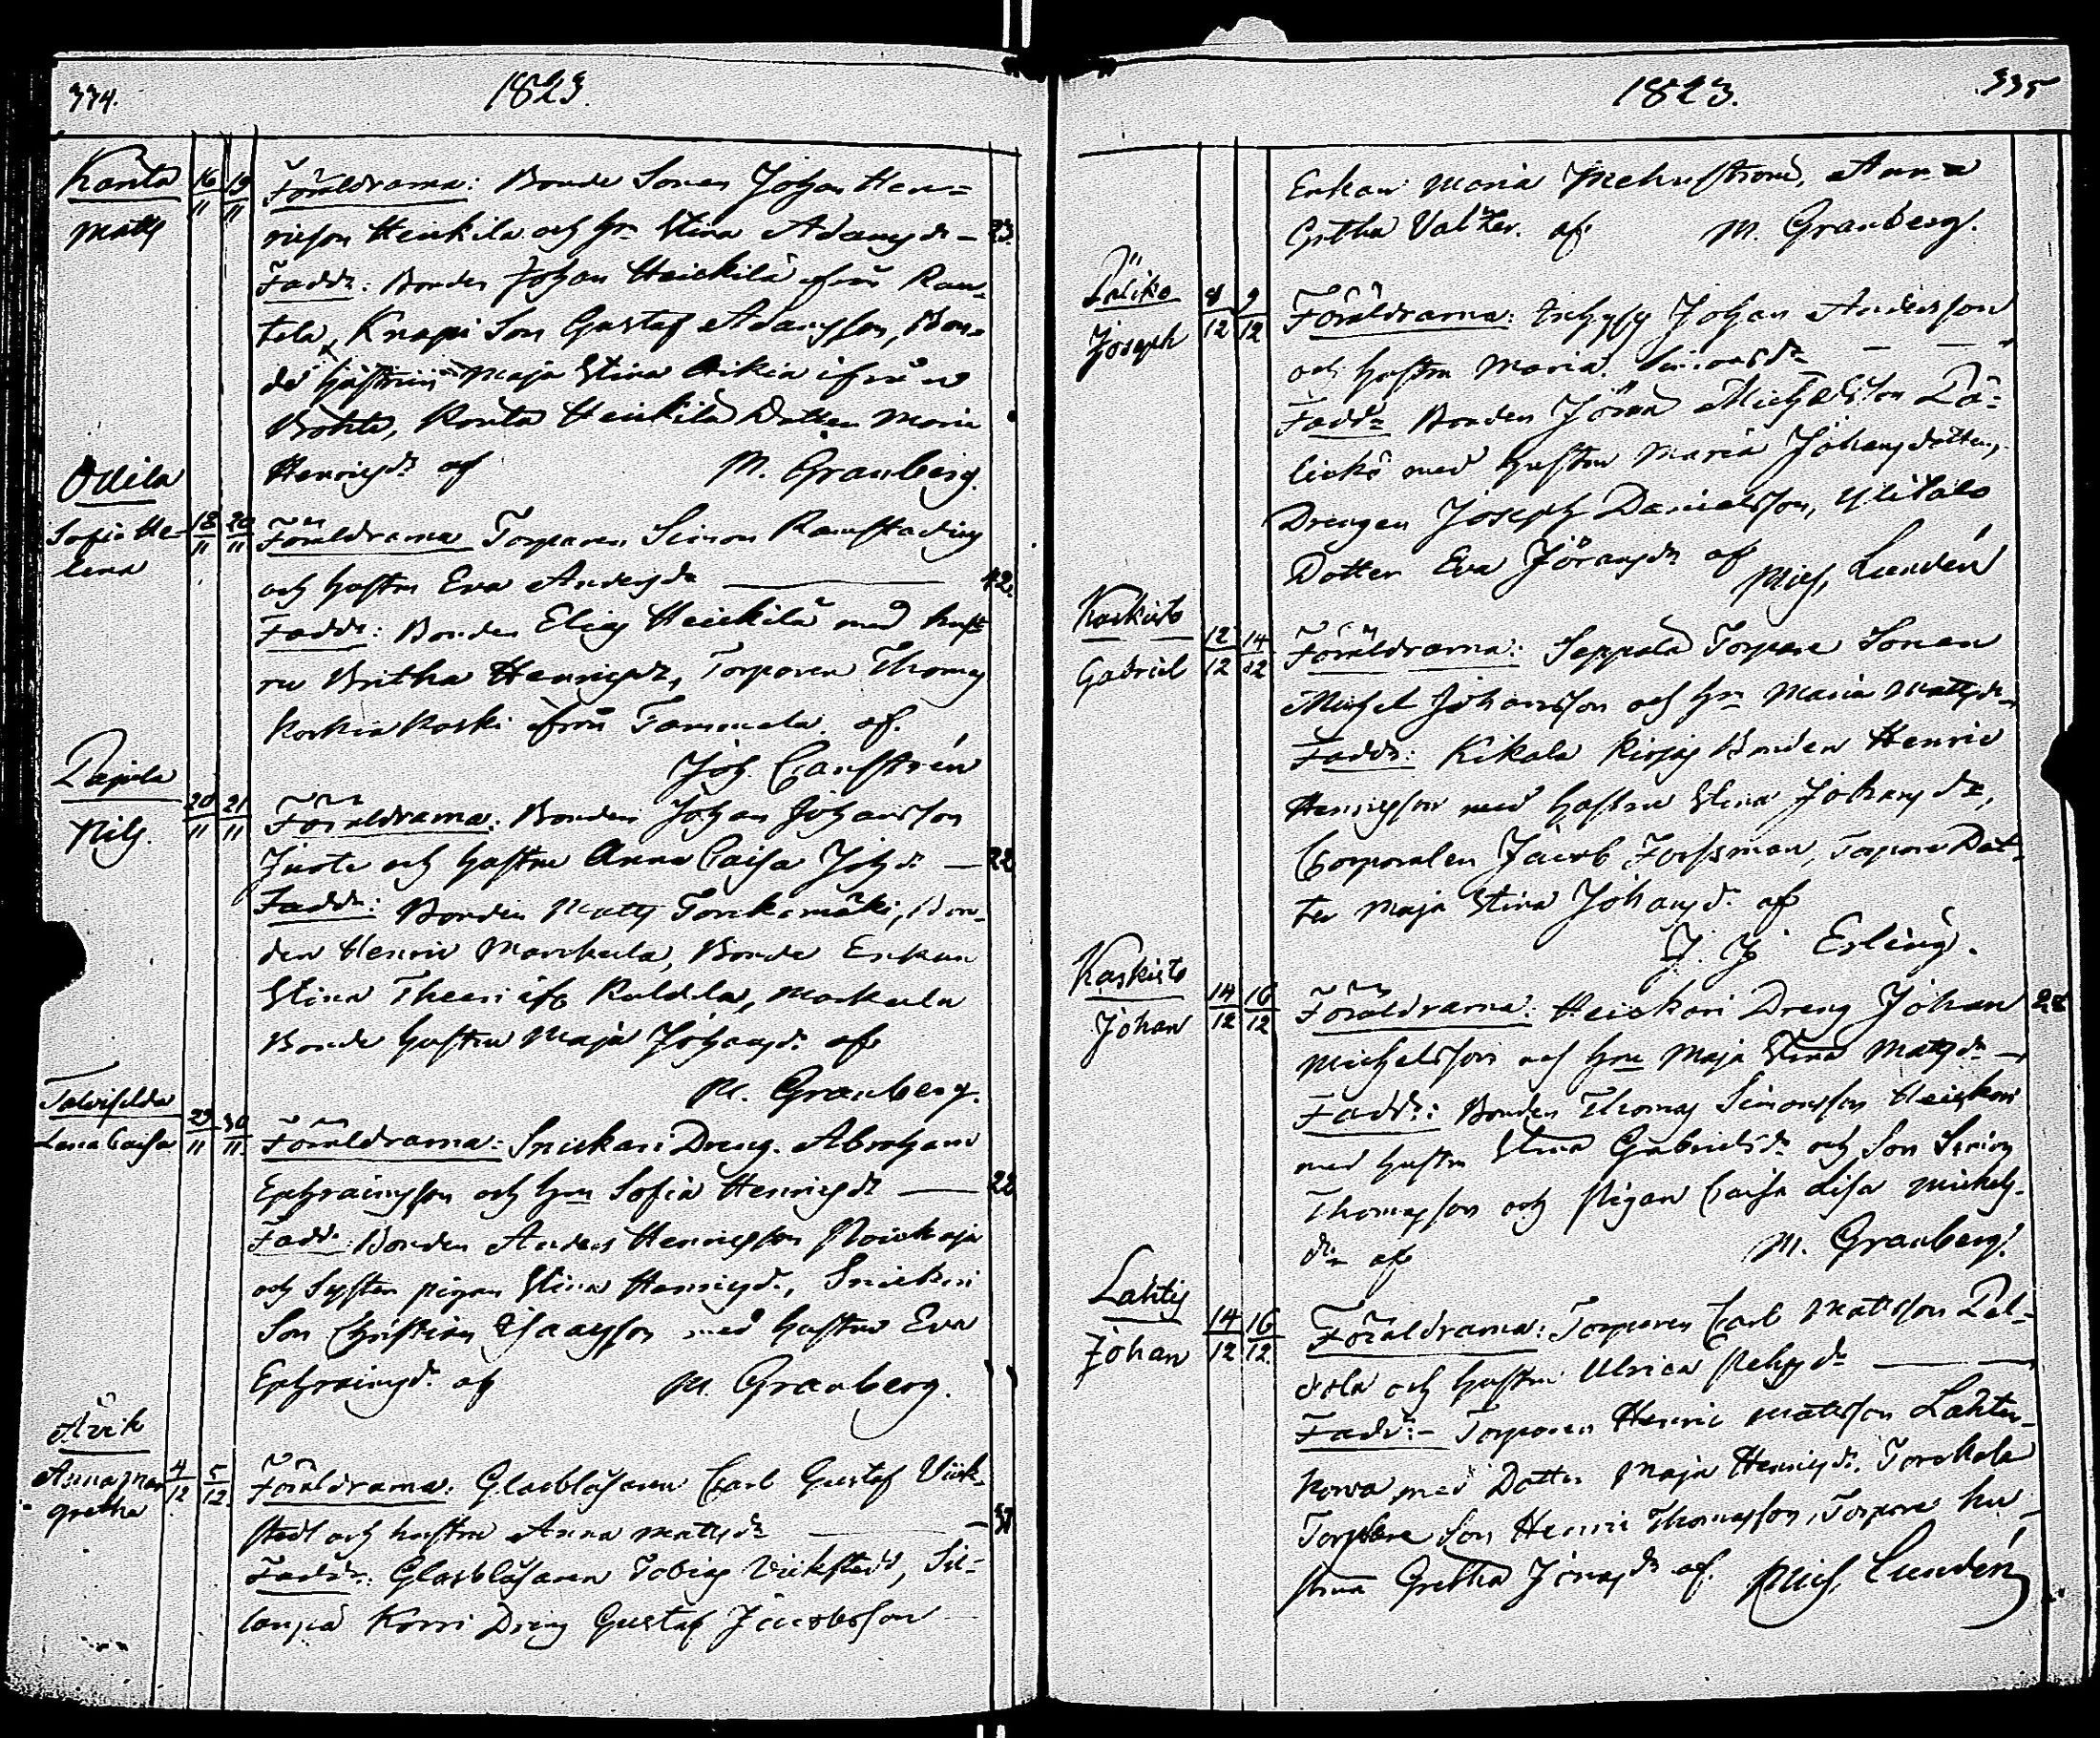 334.
1823.
Kanta
Matts
16/11 19/11
Föräldrarna: Bonde Sonen Johan Hen=
ricsson Heickilä och hu Stina Adamsdr — 23.
Faddr: Bonden Johan Heickilä ifrån Kan-
tela, Knapi Son Gustaf Adamsson, Bon-
de hustrun Maja Stina ifrån
Kanta Heickilä Dotter Maria
Henricsdr af M. Granberg.
Ollila
Sofia He-
lena
18/11 20/11
Föräldrarna Torparen Simon
och hustru Eva Andersdr — 42.
Faddr: Bonden Elias Heickilä med hust-
ru Britha Henricsdr, Torparen Thomas
Korkiakoski ifrån Tammela. af.
Joh.
Pajula
Nils.
20/11 21/11
Föräldrarna: Bonden Johan Johansson
och hustru Anna Caisa Johdr — 22
Faddr: Bonden Matts Torckomäki, Bon-
den Henric Marckula, Bonde Enkan
Stina ifr Marckula
Bonde hustrun Maja Johansdr. af
M. Granberg.
Lena Caisa
29/11 30/11
Föräldrarna: Snickari Dreng. Abraham
Ephraimsson och hru Sofia Henricsdr — 22
Faddr: Bonden Anders Henricsson
och Syster pigan Stina Henricsdr, Snickari
Son Christian Isaacsson med hustru Eva
Ephraimsdr. af M. Granberg.
Åvik
Anna Mar
gretha
4/12 5/12
Föräldrarna: Glasblåsaren Carl Gustaf Vick-
stedt och hustru Anna Mattsdr —
Faddr: Glasblåsaren Tobias Vickstedt, Sil-
Korri Dreng Gustaf Jacobsson
1823.
335
Enkan Maria Anna
Gretha af M. Granberg.
Joseph
8/12 9/12
Föräldrarna: Inhyses Johan Andersson
och hustru Maria Simonsdr —
Faddr Bonden Jöran Michelsson Pä-
lickö med hustru Maria Johansdotter,
Drengen Joseph Danielsson, Ylitalo
Dotter Eva Jöransdr af Mich. Lundén
Kaskisto
Gabriel
12/12 14/12
Föräldrarna: Seppälä Torpare Sonen
Michel Johansson och hu Maria Mattsdr
Faddr: Kikala Bonden Henric
Henricsson med hustru Stina Johansdr,
Corporalen Jacob Forssman, Torpare Dot-
ter Maja Stina Johansdr. af
J. J. Erling.
Kaskisto
Johan
14/12 16/12
Föräldrarna: Heickari Dreng Johan 28
Michelsson och hru Maja Stina Mattsdr —
Faddr: Bonden Thomas Simonsson Heickari
med hustru Stina Gabrielsdr och Son Simon
Thomasson och Pigan Caisa Lisa Michels-
dr af M. Granberg.
Lahtis
Johan
14/12 16/12
Föräldrarna: Torparen Carl Mattsson Pel-
dola och hustru Ulrica —
Faddr:- Torparen Henric Mattsson Lahten-
korva med Dotter Maja Henricsdr. Torckola
Torpare Son Henric Thomasson, Torpare hu-
strun Gretha Jönasdr af. Mich. Lundén